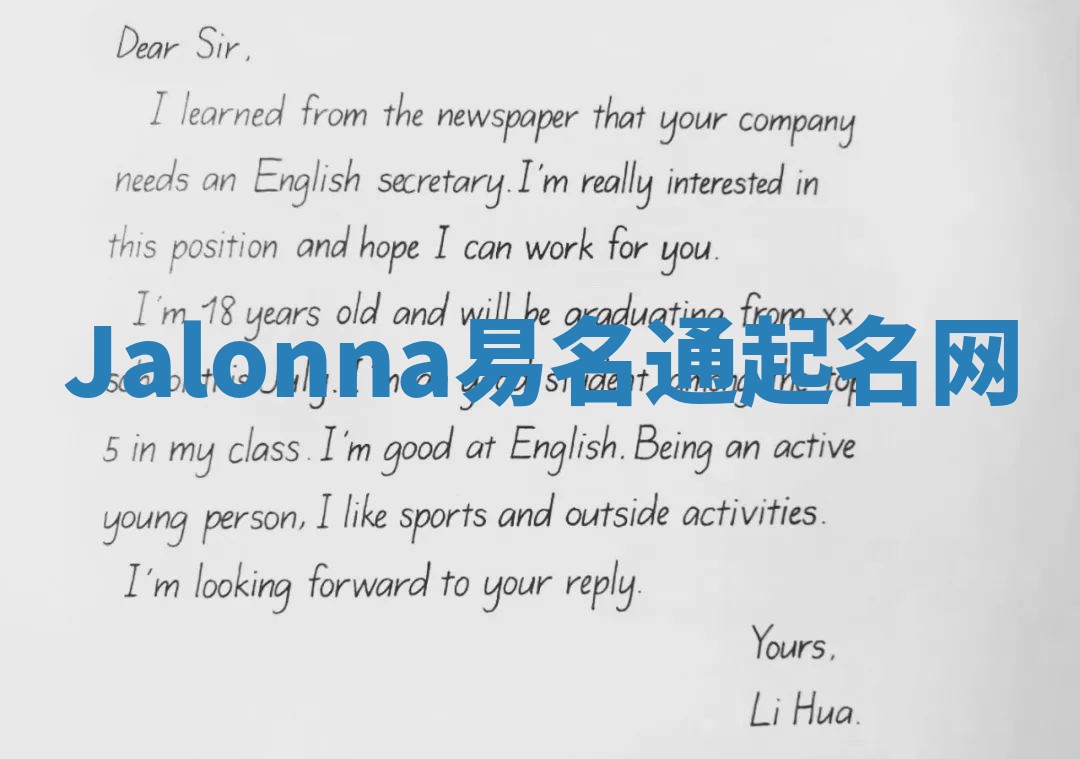 Dear Sir,
I learned from the newspaper that your company
needs an English secretary. I'm really interested in
this position and hope I can work for you.
I'm 18 years old and will be graduating from xx
Jalonna易名通起名网
school this July. I'm a good student among the top
5 in my class. I'm good at English. Being an active
young person, I like sports and outside activities.
I'm looking forward to your reply.
Yours,
Li Hua.